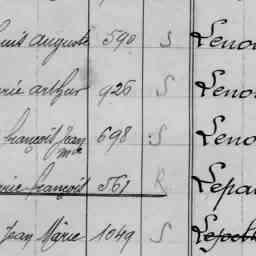 Louis Auguste 590 S Leno
Marie Arthur 926 S Leno
François Jean Mie 698 S Leno
François 561 R Lepa
Jean Marie 1049 S